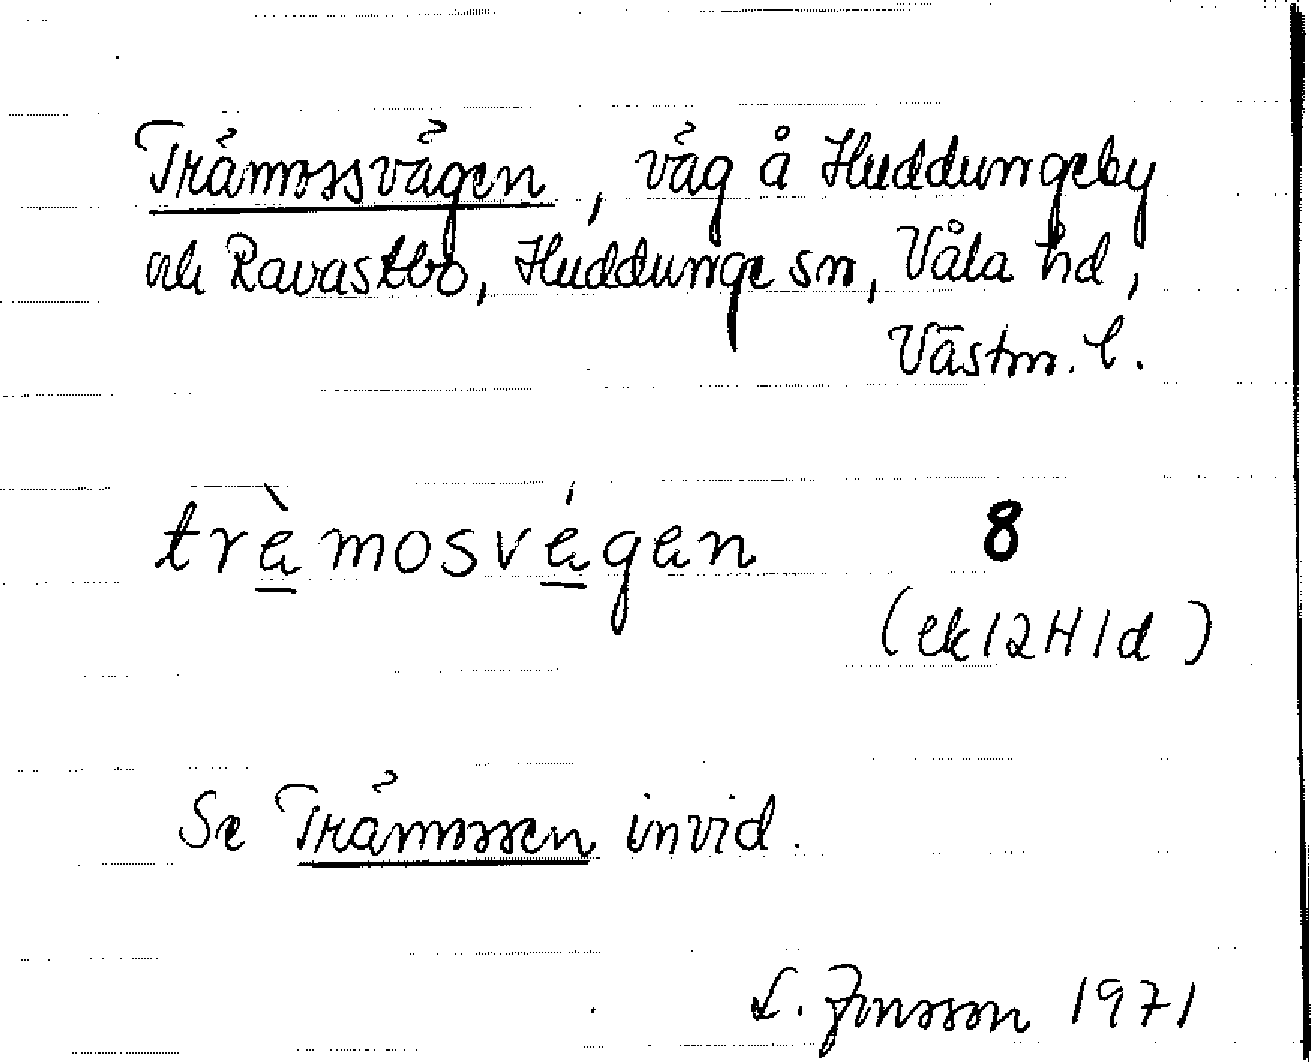 Trämossvägen, väg å Huddungeby
och Ravastbo, Huddunge sn, Våla hd,
Västm. l.
trèmosvégen 8
(ek 12H1d)
Se Trämossen invid.
L. Jonsson 1971